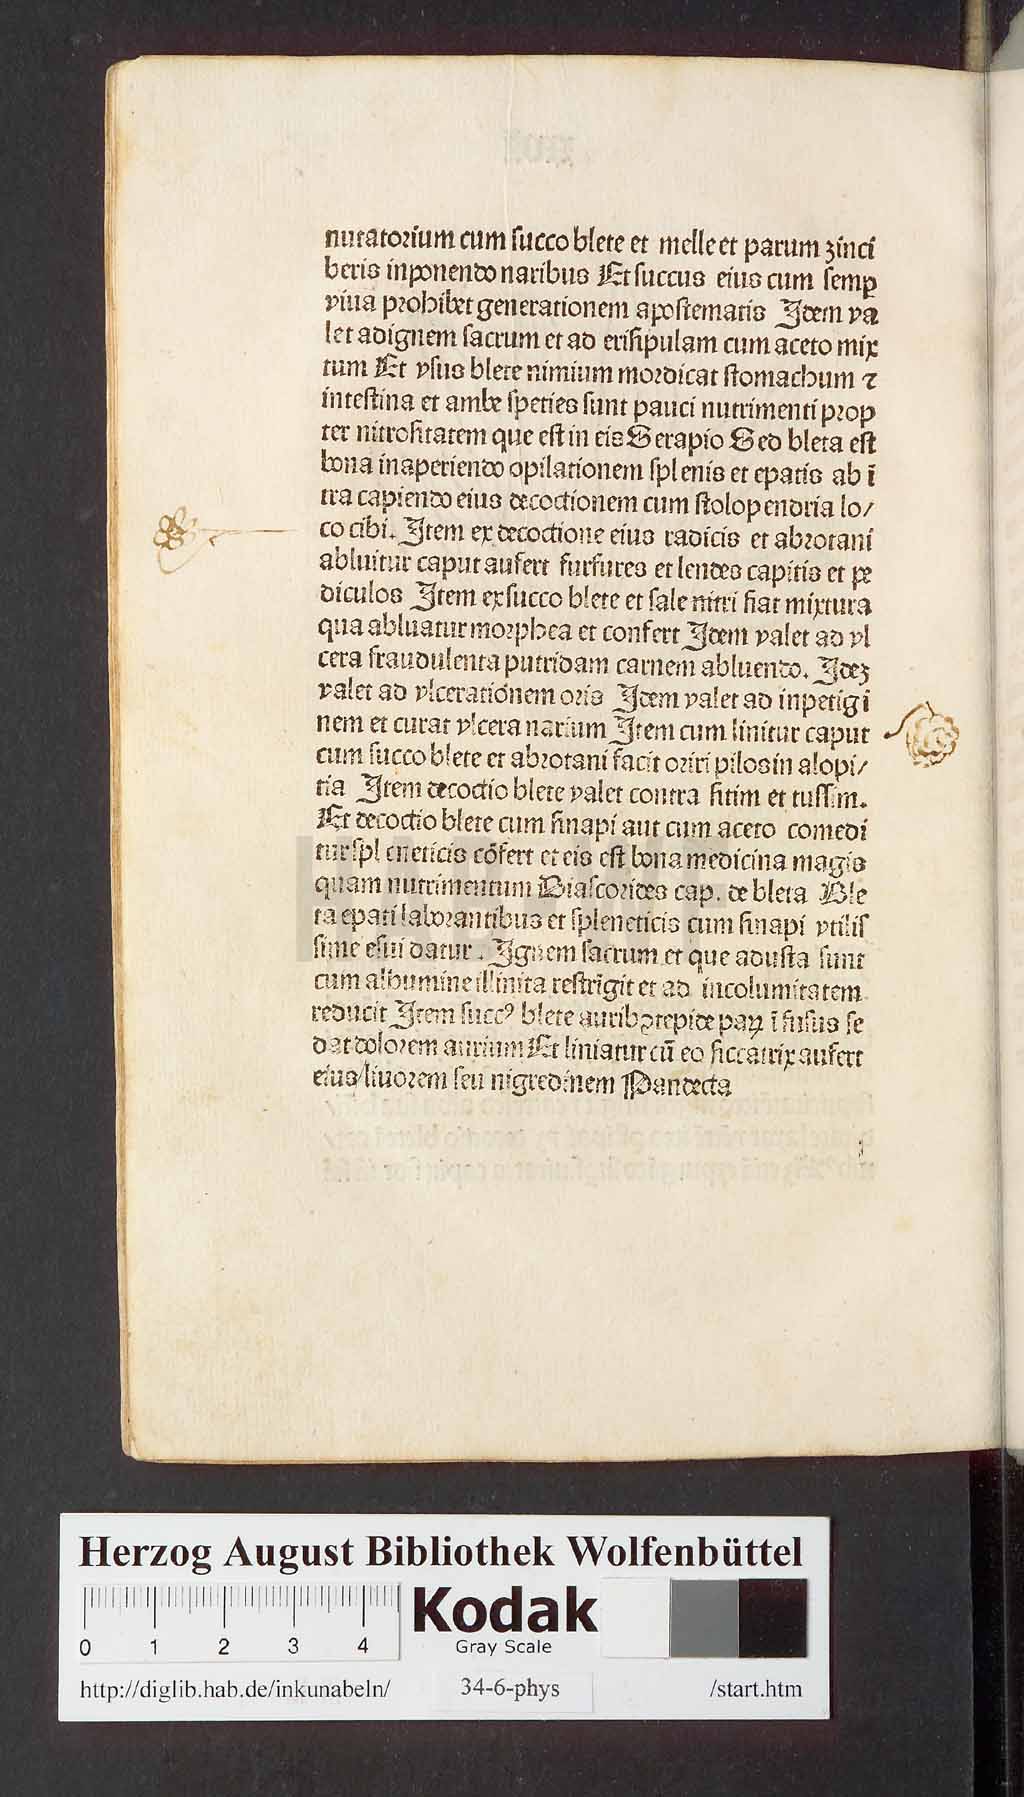 nutatorium cum succo blete et melle et parum zinci
beris inponendo naribus Et succus eius cum semp
viua prohibet generationem apostematis Idem va
let adignem sacrum et ad erisipulam cum aceto mix
tum Et vsus blete nimium mordicat stomachum ⁊
intestina et ambe speties sunt pauci nutrimenti prop
ter nitrositatem que est in eis Serapio Sed bleta est
bona inaperiendo opilationem splenis et epatis ab ī
tra capiendo eius decoctionem cum stolopendria lo/
co cibi. Item ex decoctione eius radicis et abrotani
abluitur caput aufert furfures et lendes capitis et pe
diculos Item ex succo blete et sale nitri fiat mixtura
qua abluatur morphea et confert Idem valet ad vl
cera fraudulenta putridam carnem abluendo. Idez
valet ad vlcerationem oris Idem valet ad inpetigi
nem et curat vlcera narium Item cum linitur caput
cum succo blete et abrotani facit oriri pilos in alopi/
tia Item decoctio blete valet contra sitim et tussim.
Et decoctio blete cum sinapi aut cum aceto comedi
tur spleneticis cōfert et eis est bona medicina magis
quam nutrimentum Diascorides cap. de bleta Ble
ta epati laborantibus et spleneticis cum sinapi vtilis
sime esui datur. Ignem sacrum et que adusta sunt
cum albumine illinita restrīgit et ad incolumitatem
reducit Item succꝰ blete auribꝫ tepide paꝝ īfusus se
dat dolorem aurium Et liniatur cū eo siccatrix aufert
eius liuorem seu nigredinem Pandecta
Herzog August Bibliothek Wolfenbüttel
0 1 2 3 4
Kodak
Gray Scale
http://diglib.hab.de/inkunabeln/ 34-6-phys /start.htm